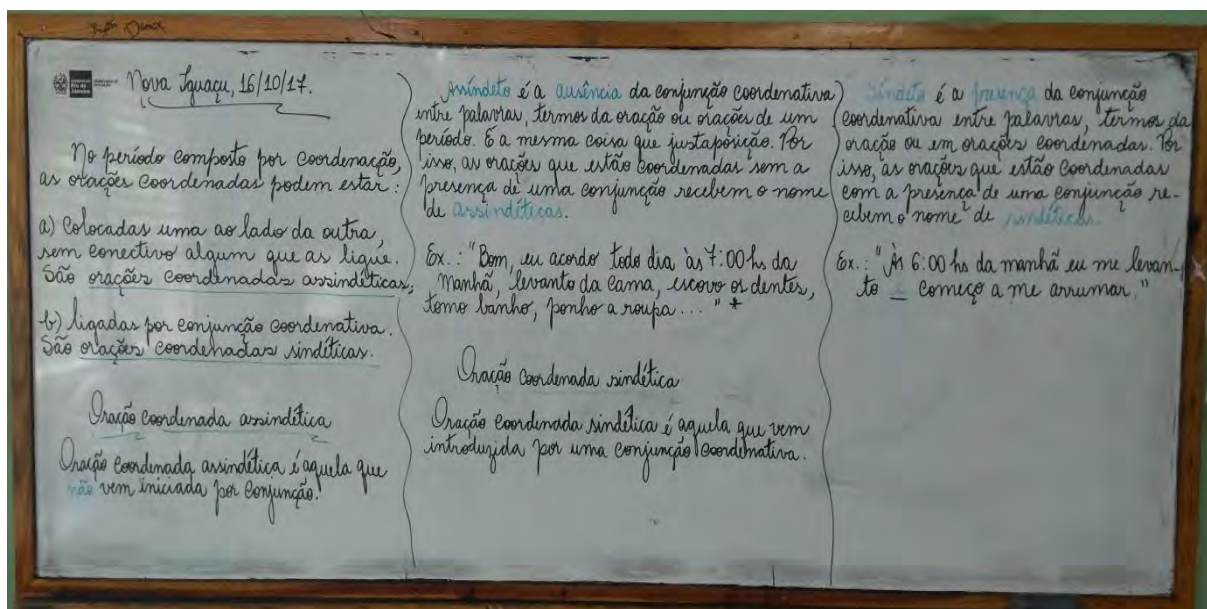 Nova Iguaçu, 16/10/17.
No período composto por coordenação,
as orações coordenadas podem estar:
a) Colocadas uma ao lado da outra,
sem conectivo algum que as ligue.
São orações coordenadas assindéticas;
b) ligadas por conjunção coordenativa.
São orações coordenadas sindéticas.
Oração coordenada assindética
Oração coordenada assindética é aquela que
não vem iniciada por conjunção.
Assíndeto é a ausência da conjunção coordenativa
entre palavras, termos da oração ou orações de um
período. É a mesma coisa que justaposição. Por
isso, as orações que estão coordenadas sem a
presença de uma conjunção recebem o nome
de assindéticas.
Ex.: "Bom, eu acordo todo dia às 7:00 hs da
manhã, levanto da cama, escovo os dentes,
tomo banho, ponho a roupa..." *
Oração coordenada sindética
Oração coordenada sindética é aquela que vem
introduzida por uma conjunção coordenativa.
Síndeto é a presença da conjunção
coordenativa entre palavras, termos da
oração ou em orações coordenadas. Por
isso, as orações que estão coordenadas
com a presença de uma conjunção re-
cebem o nome de sindéticas.
Ex.: "Às 6:00 hs da manhã eu me levan-
to _ começo a me arrumar."